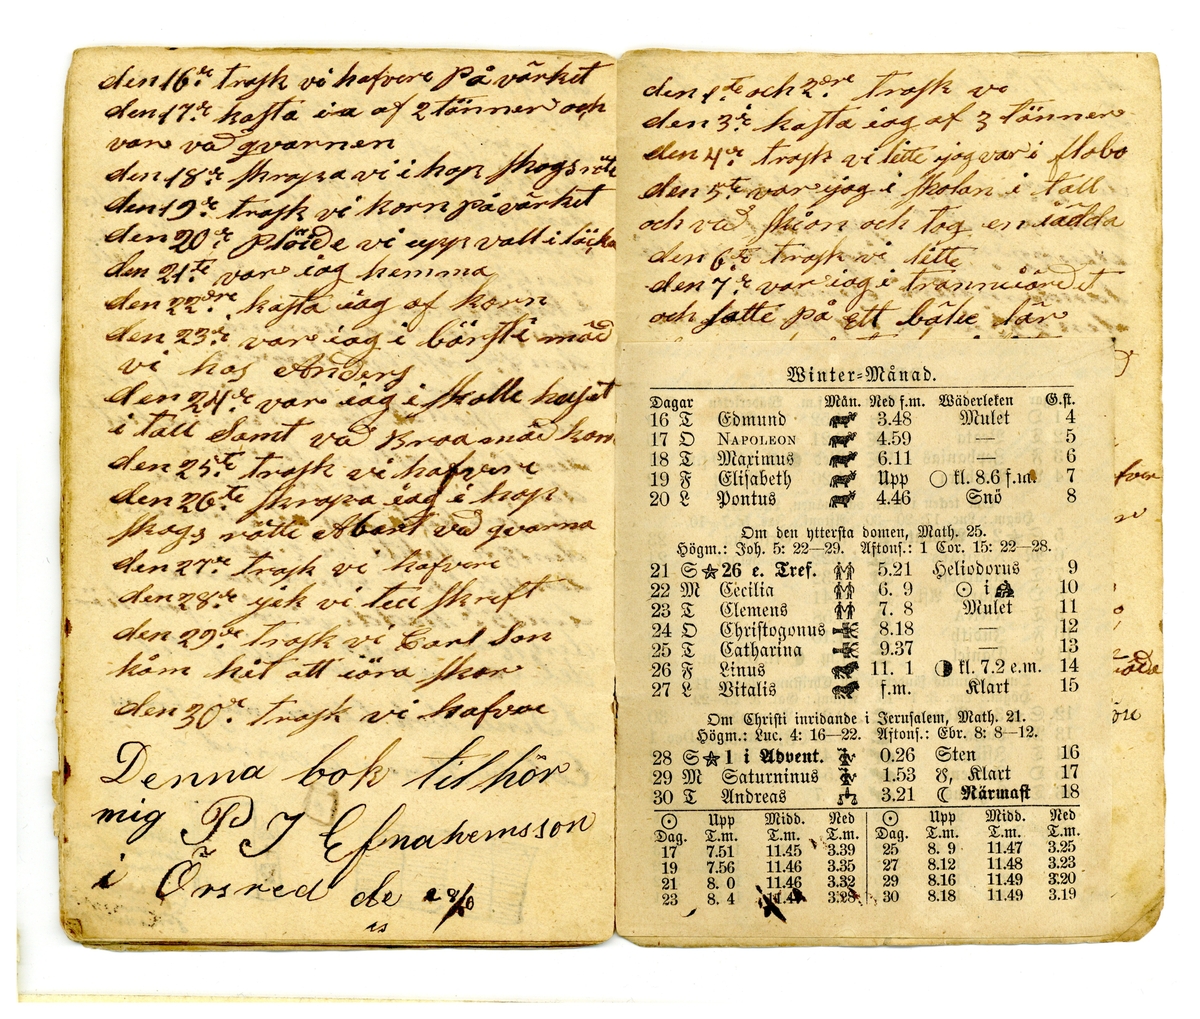 den 16de trosk vi hafvere på värket
den 17de kasta ia af 2 tönner och
var vad qvarnen
den 18de skrapa vi i hop skogs röte
den 19de trosk vi korn på värket
den 20de plöide vi upp vall i löcka
den 21te var iag hemma
den 22dre kasta iag af korn
den 23de var iag i börsti mäd
vi hos Anders
den 24de var iag i skolle huset
i tall Samt vad Kroa mäd korn
den 25te trosk vi hafvere
den 26te skrapa iag i hop
skogs rötte Abant vad qvarna
den 27de trosk vi hafvere
den 28de jek vi till skrift
den 29de trosk vi Carl Son
kåm hit att iöra skor
den 30de trosk vi hafvae
Denna bok tilhör
mig P J Efnahemsson
i Örsred de
den 1ste och 2dre trosk vi
den 3de kasta iag af 3 tönner
den 4de trosk vi litte jag var i flobo
den 5te var jag i skolan i tall
och vid skion och tog en iädda
den 6te trosk vi litte
den 7de var iag i tranniöret
och satte på ett bälte lår
Winter-Månad.
Dagar Mån. Ned f.m. Wäderleken G.st.
16 T Edmund 3.48 Mulet 4
17 O NAPOLEON 4.59 — 5
18 T Maximus 6.11 — 6
19 F Elisabeth Upp ○ kl. 8.6 f.m. 7
20 L Pontus 4.46 Snö 8
Om den yttersta domen, Math. 25.
Högm.: Joh. 5: 22—29. Aftons.: 1 Cor. 15: 22—28.
21 S ☆ 26 e. Tref. 5.21 Heliodorus 9
22 M Cecilia 6. 9 ☉ i 10
23 T Clemens 7. 8 Mulet 11
24 O Christogonus 8.18 — 12
25 T Catharina 9.37 — 13
26 F Linus 11. 1 ◑ kl. 7.2 e.m. 14
27 L Vitalis f.m. Klart 15
Om Christi inridande i Jerusalem, Math. 21.
Högm.: Luc. 4: 16—22. Aftons.: Ebr. 8: 8—12.
28 S ☆ 1 i Advent. 0.26 Sten 16
29 M Saturninus 1.53 ☋, Klart 17
30 T Andreas 3.21 ☾ Närmast 18
☉ Upp Midd. Ned ☉ Upp Midd. Ned
Dag. T.m. T.m. T.m. Dag. T.m. T.m. T.m.
17 7.51 11.45 3.39 25 8. 9 11.47 3.25
19 7.56 11.46 3.35 27 8.12 11.48 3.23
21 8. 0 11.46 3.32 29 8.16 11.49 3.20
23 8. 4 11.47 3.28 30 8.18 11.49 3.19